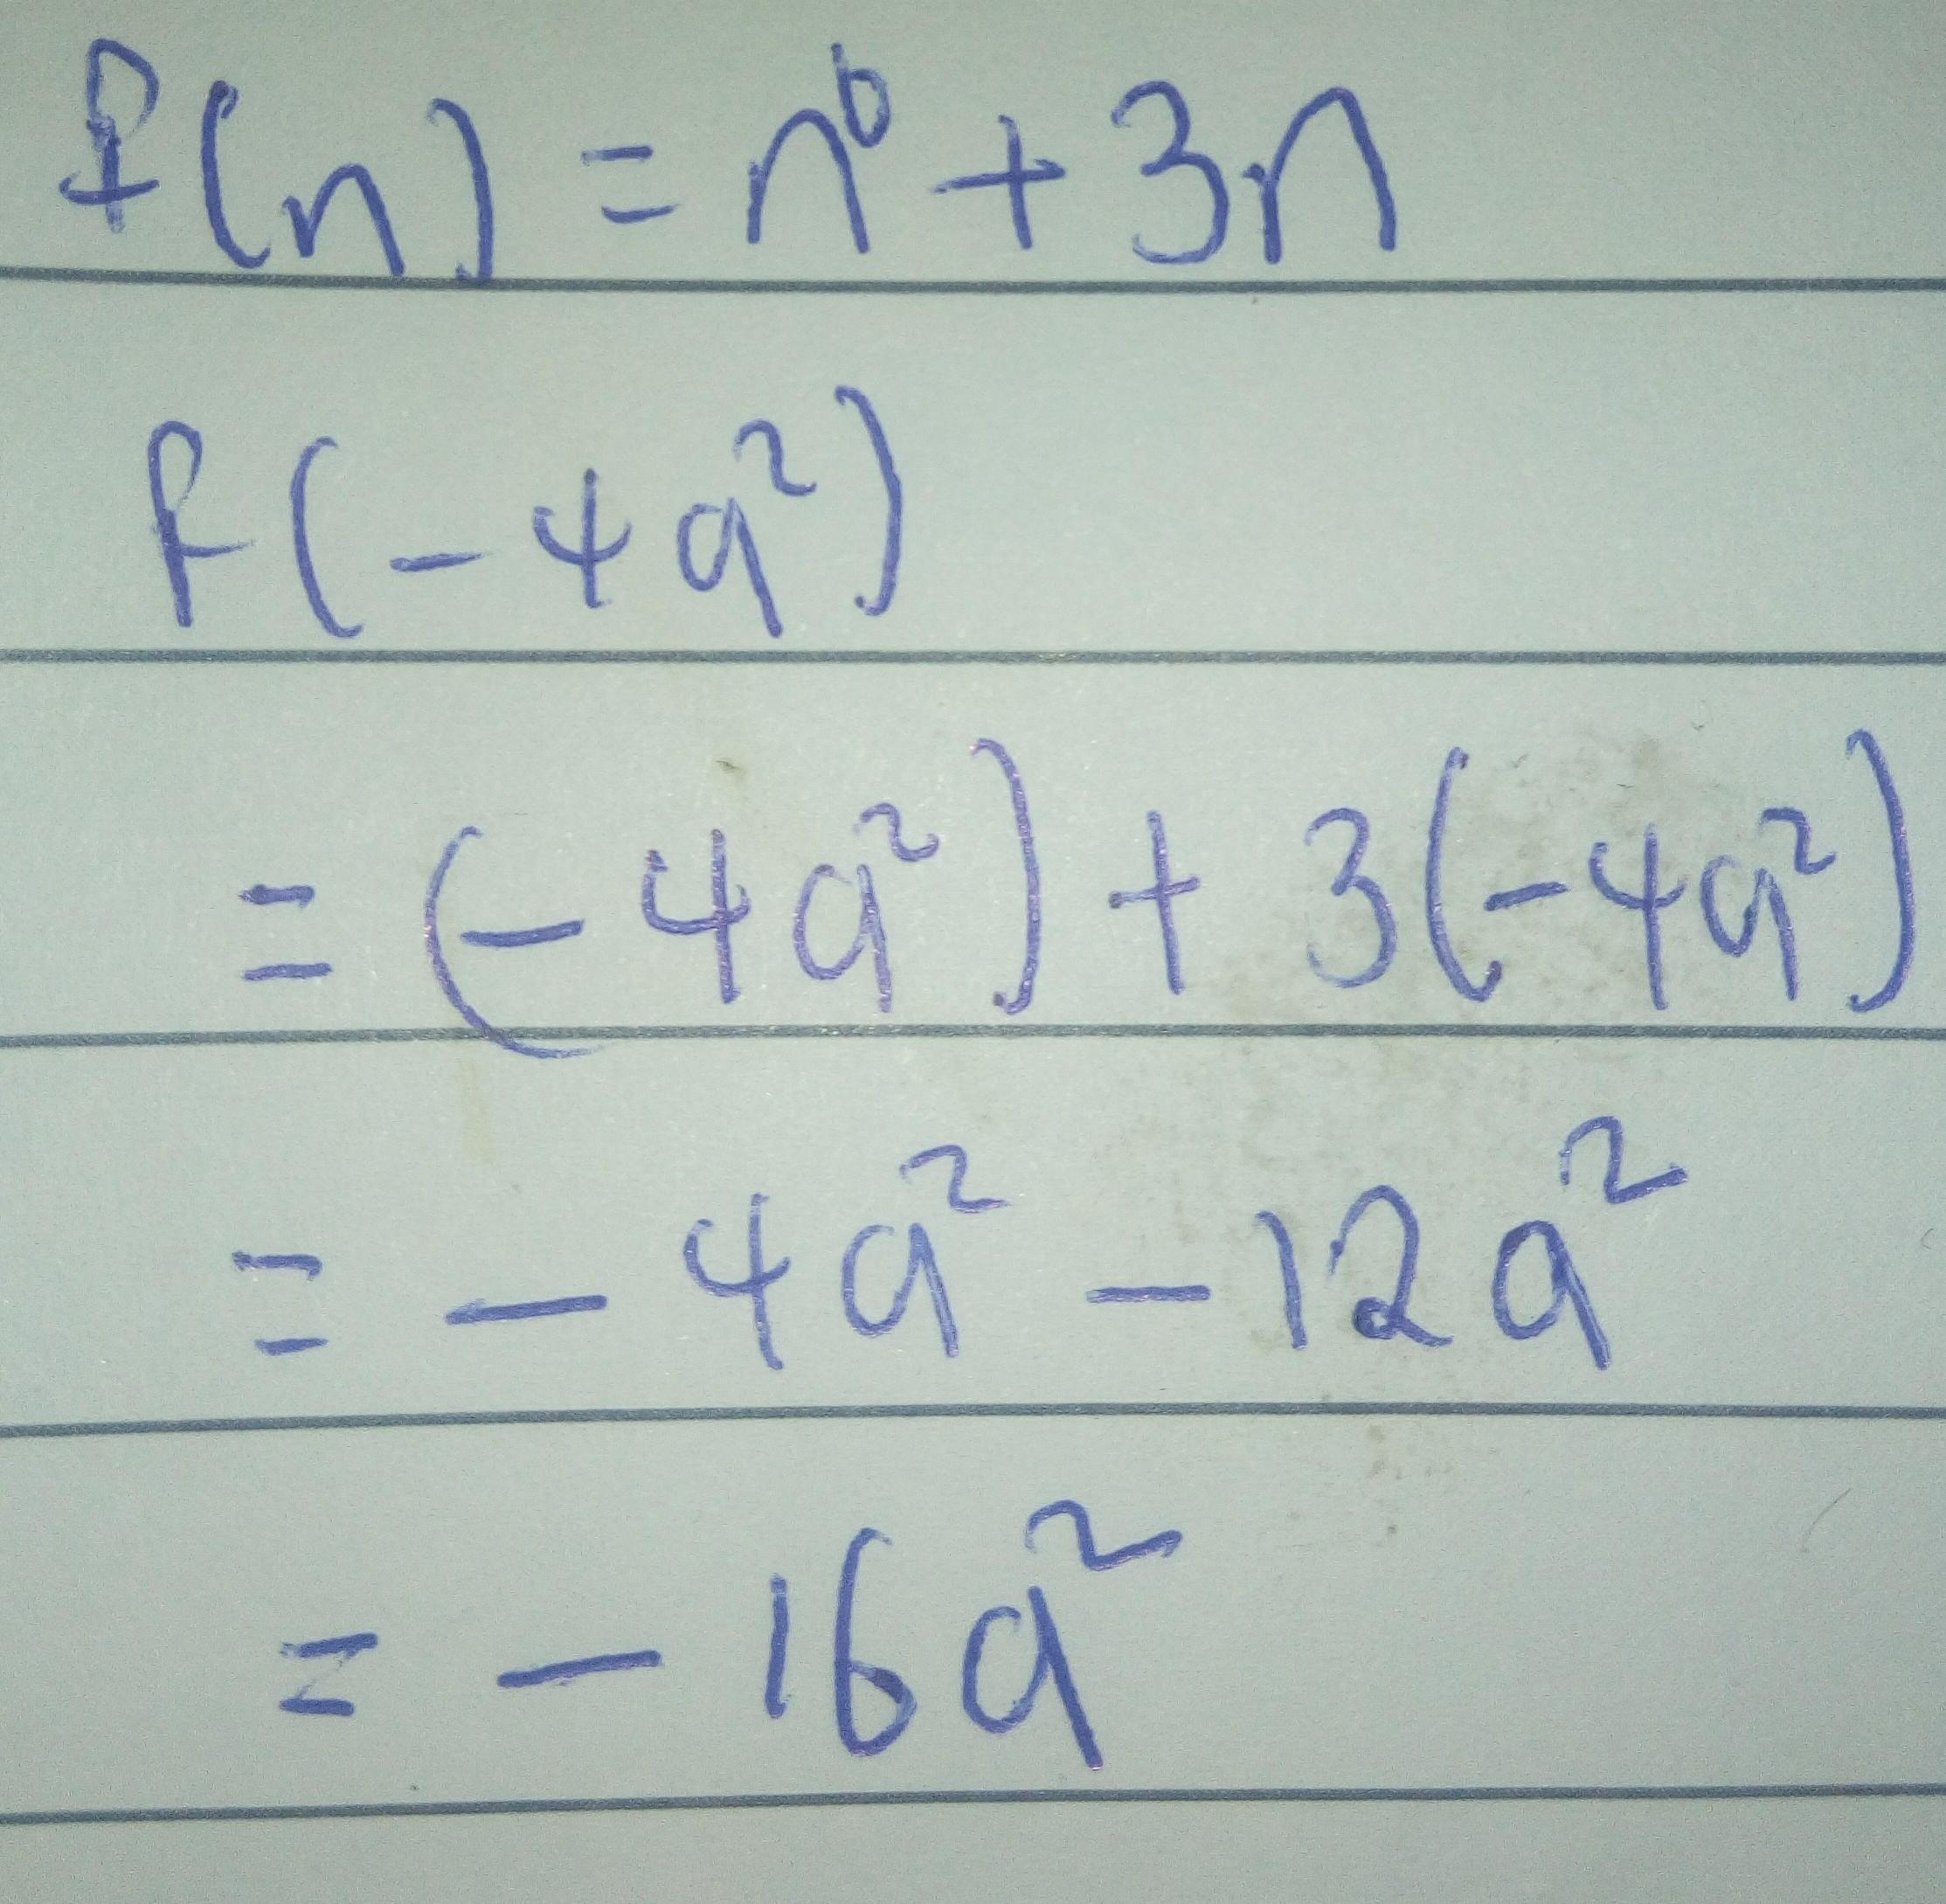 f(n) = n⁶ + 3n
f(-4a²)
= (-4a²) + 3(-4a²)
= - 4a² - 12a²
= - 16a²